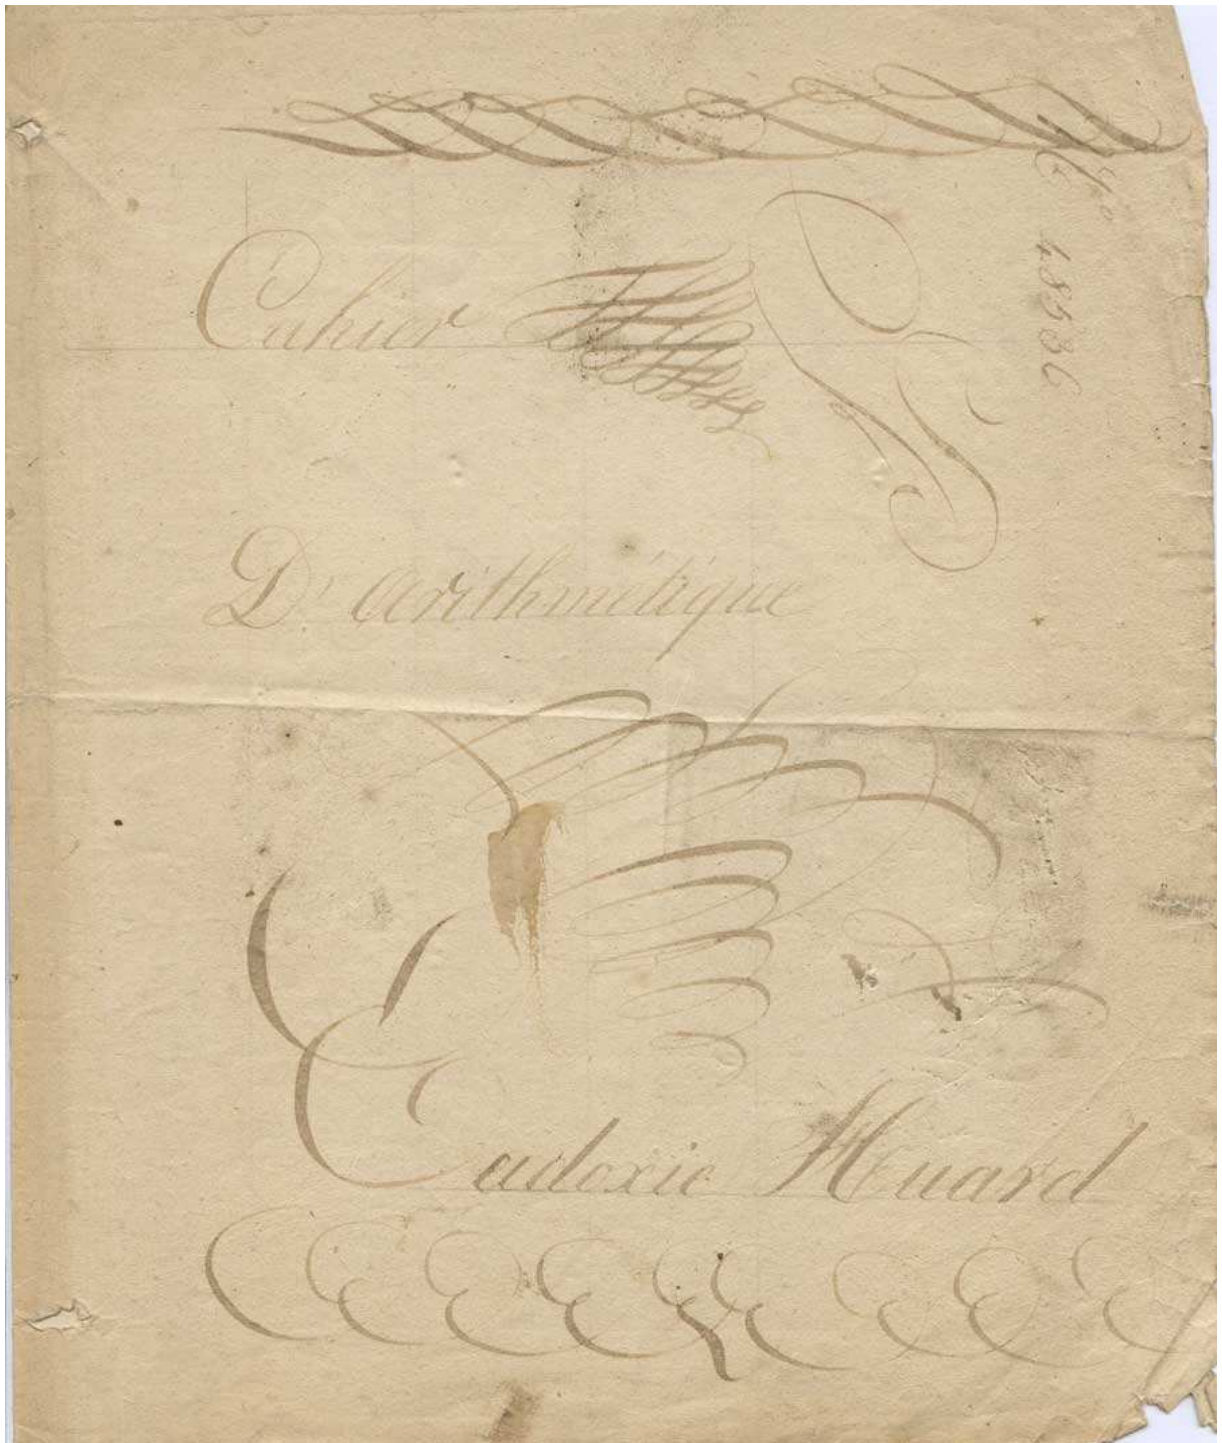 Cahier
D'arithmétique
Eudoxie Huard
48536